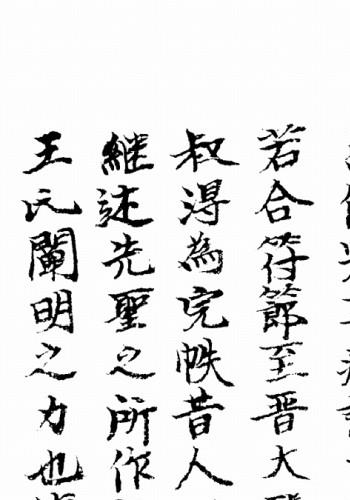 若合符節至晋大
叔淂為完帙昔人
継述先聖之所作
王氏闡明之力也